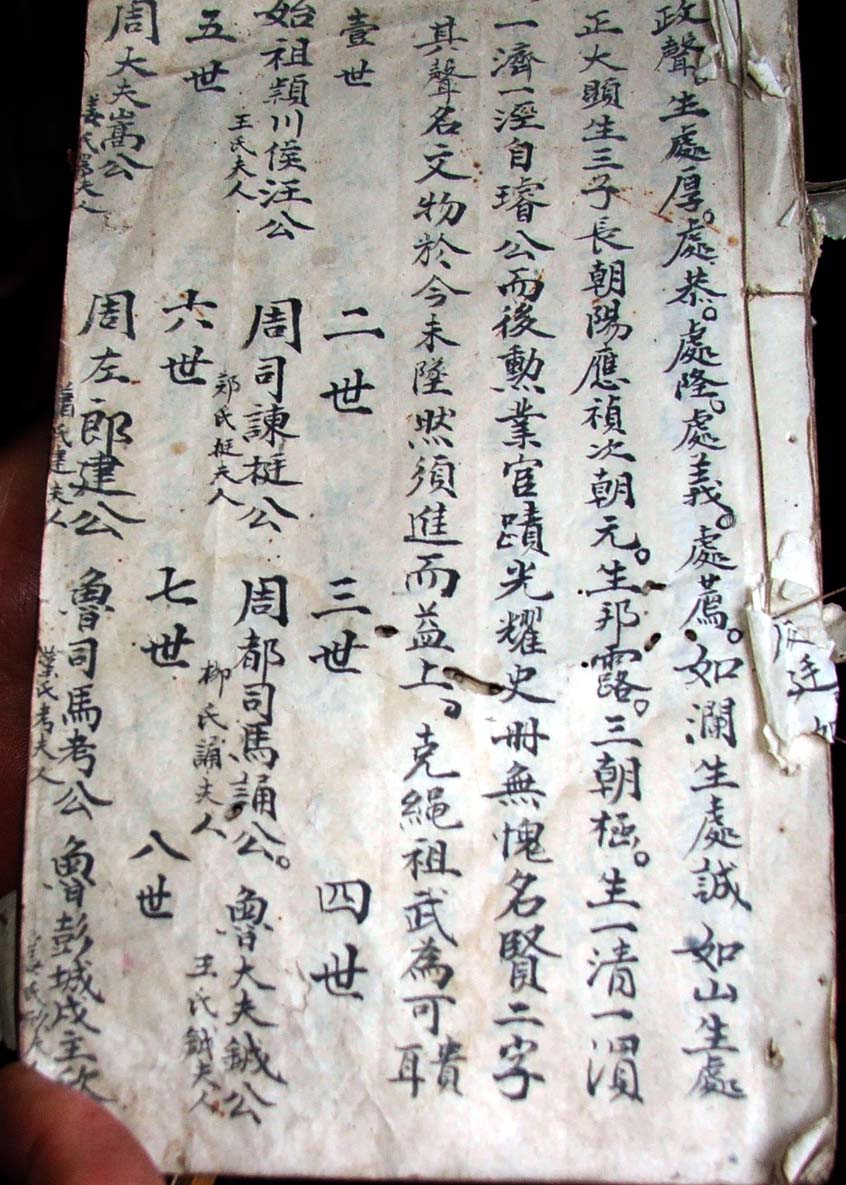 政聲。生處厚。處恭。處隆。處義。處薦。如瀾生處誠如山生處
正大顯生三子長朝陽應禎次朝元。生邦露。三朝極。生一清一澬
一濟一涇自璿公而後勲業官蹟光耀史冊無愧名賢二字
其聲名文物於今未墜然須進而益上。克繩祖武為可貴耳
壹世
二世
三世
四世
始祖頴川侯汪公
王氏夫人
周司諫挺公
郑氏挺夫人
周都司馬誦公。
柳氏誦夫人
魯大夫鉞公
王氏鉞夫人
五世
六世
七世
八世
周大夫嵩公
姜氏嵩夫人
周左郎建公
蕭氏建夫人
魯司馬考公
葉氏考夫人
魯彭城戍主